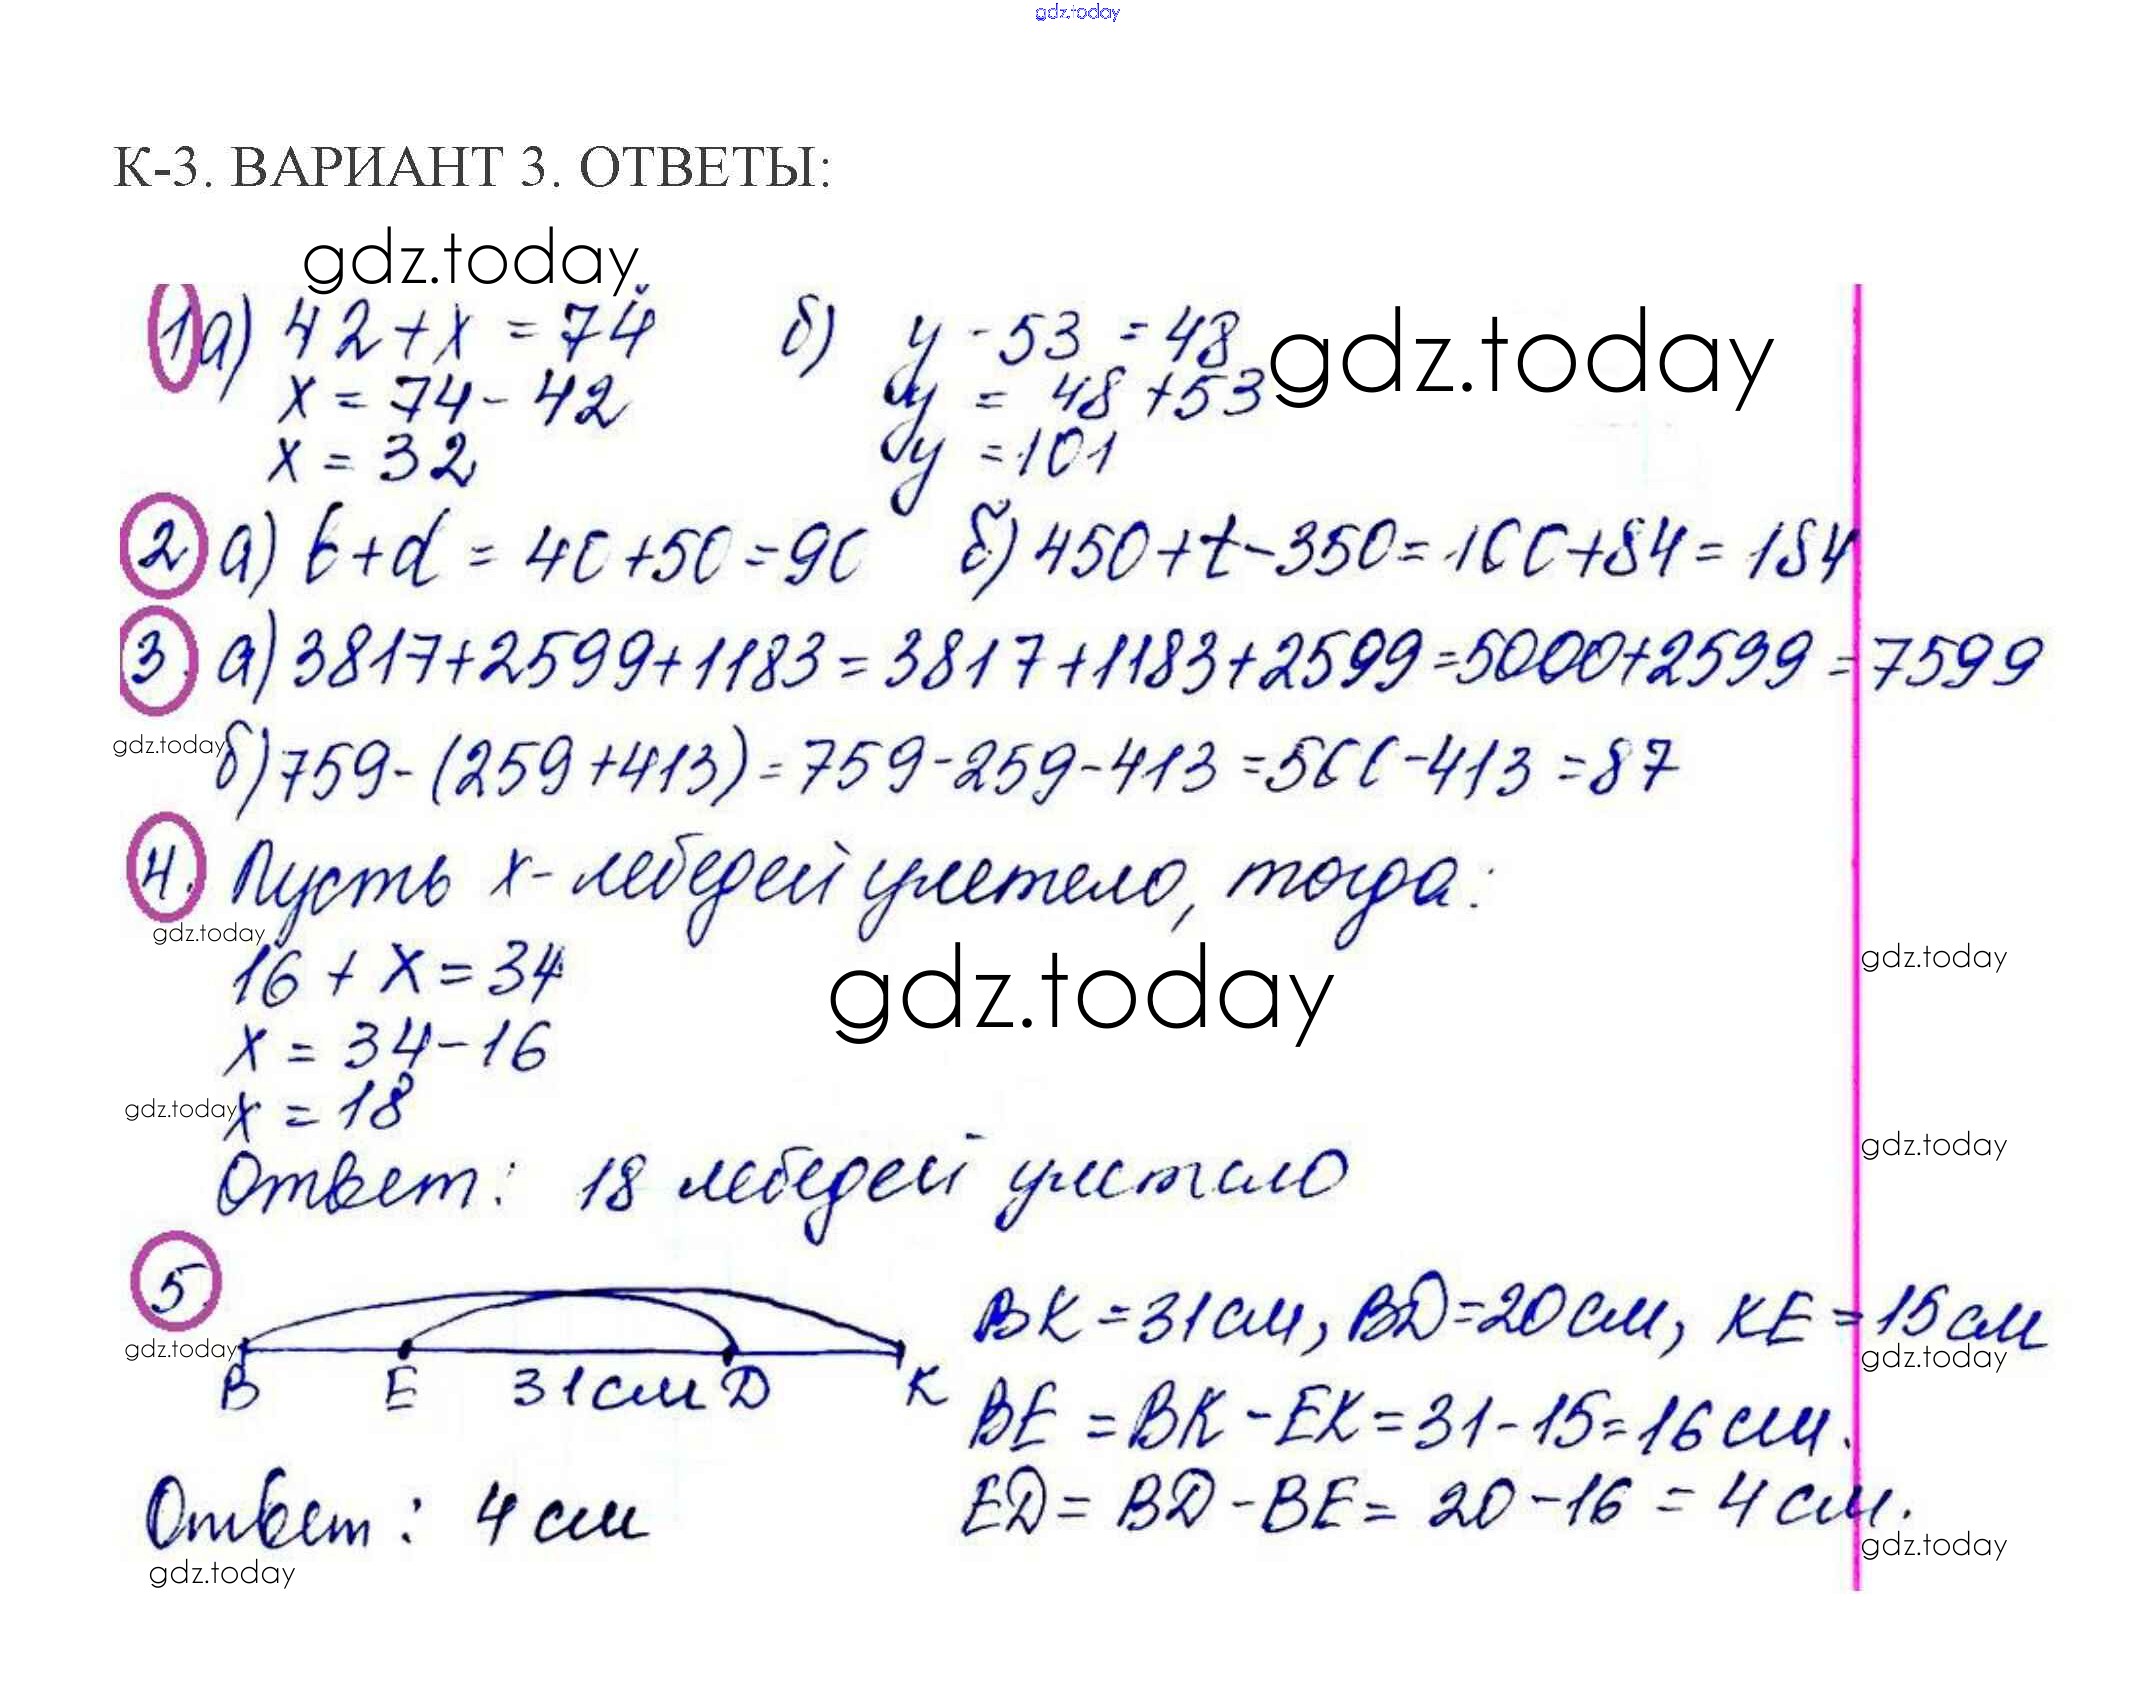 gdz.today
К-3. ВАРИАНТ 3. ОТВЕТЫ:
gdz.today
1 а) 42+x = 74 б) y - 53 = 48 gdz.today
x = 74 - 42 y = 48 + 53
x = 32 y = 101
2 а) b + d = 40 + 50 = 90 б) 450 + t - 350 = 100 + 84 = 184
3. а) 3817+2599+1183 = 3817+1183+2599 = 5000+2599 = 7599
gdz.today б) 759 - (259 + 413) = 759 - 259 - 413 = 500 - 413 = 87
4. Пусть x - лебедей улетело, тогда:
gdz.today
16 + x = 34 gdz.today gdz.today
x = 34 - 16
gdz.today x = 18
gdz.today
Ответ: 18 лебедей улетело
5. BK = 31 см, BD = 20 см, KE = 15 см
gdz.today gdz.today
B E 31 см D K
BE = BK - EK = 31 - 15 = 16 см.
Ответ: 4 см ED = BD - BE = 20 - 16 = 4 см.
gdz.today gdz.today